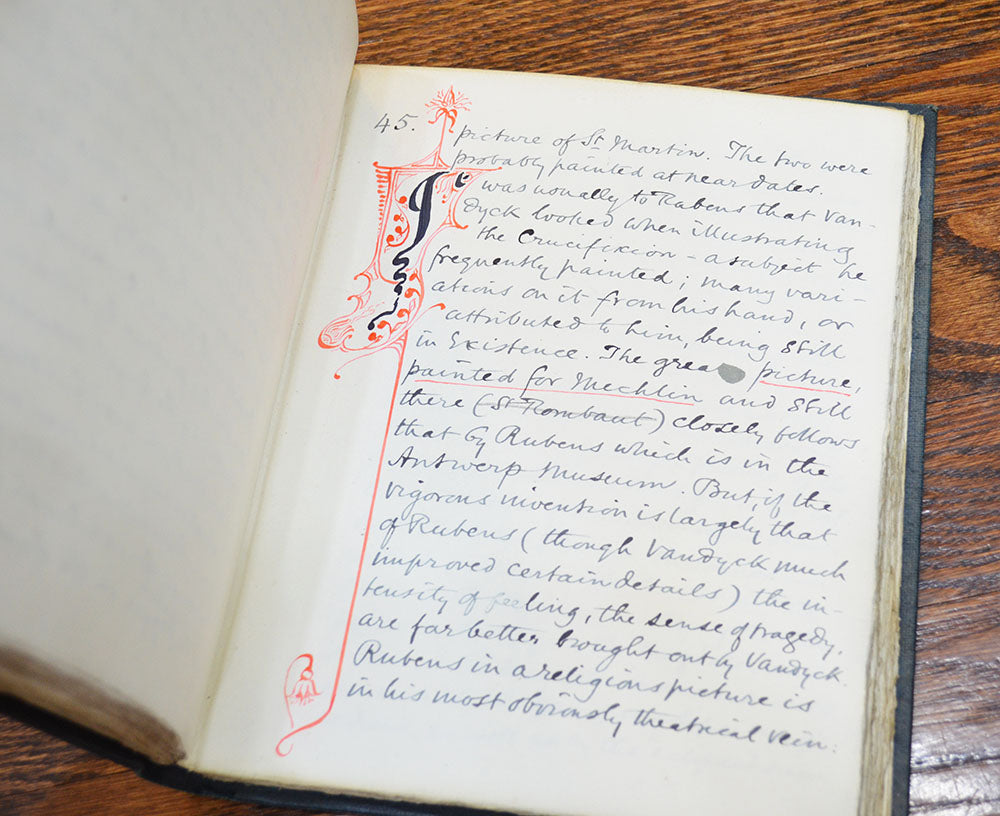 45.
picture of St Martin. The two were
probably painted at near dates.
It was usually to Rubens that Van-
dyck looked when illustrating
the Crucifixion - a subject he
frequently painted; many vari-
ations on it from his hand, or
attributed to him, being still
in Existence. The great picture,
painted for Mechlin and still
there (St Rombaut) closely follows
that by Rubens which is in the
Antwerp Museum. But, if the
vigorous invention is largely that
of Rubens (though Vandyck much
improved certain details) the in-
tensity of feeling, the sense of tragedy,
are far better brought out by Vandyck.
Rubens in a religious picture is
in his most obviously theatrical vein.